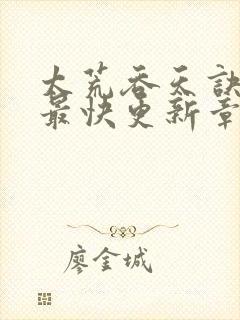 大荒吞天訣
最快更新章
廖金城